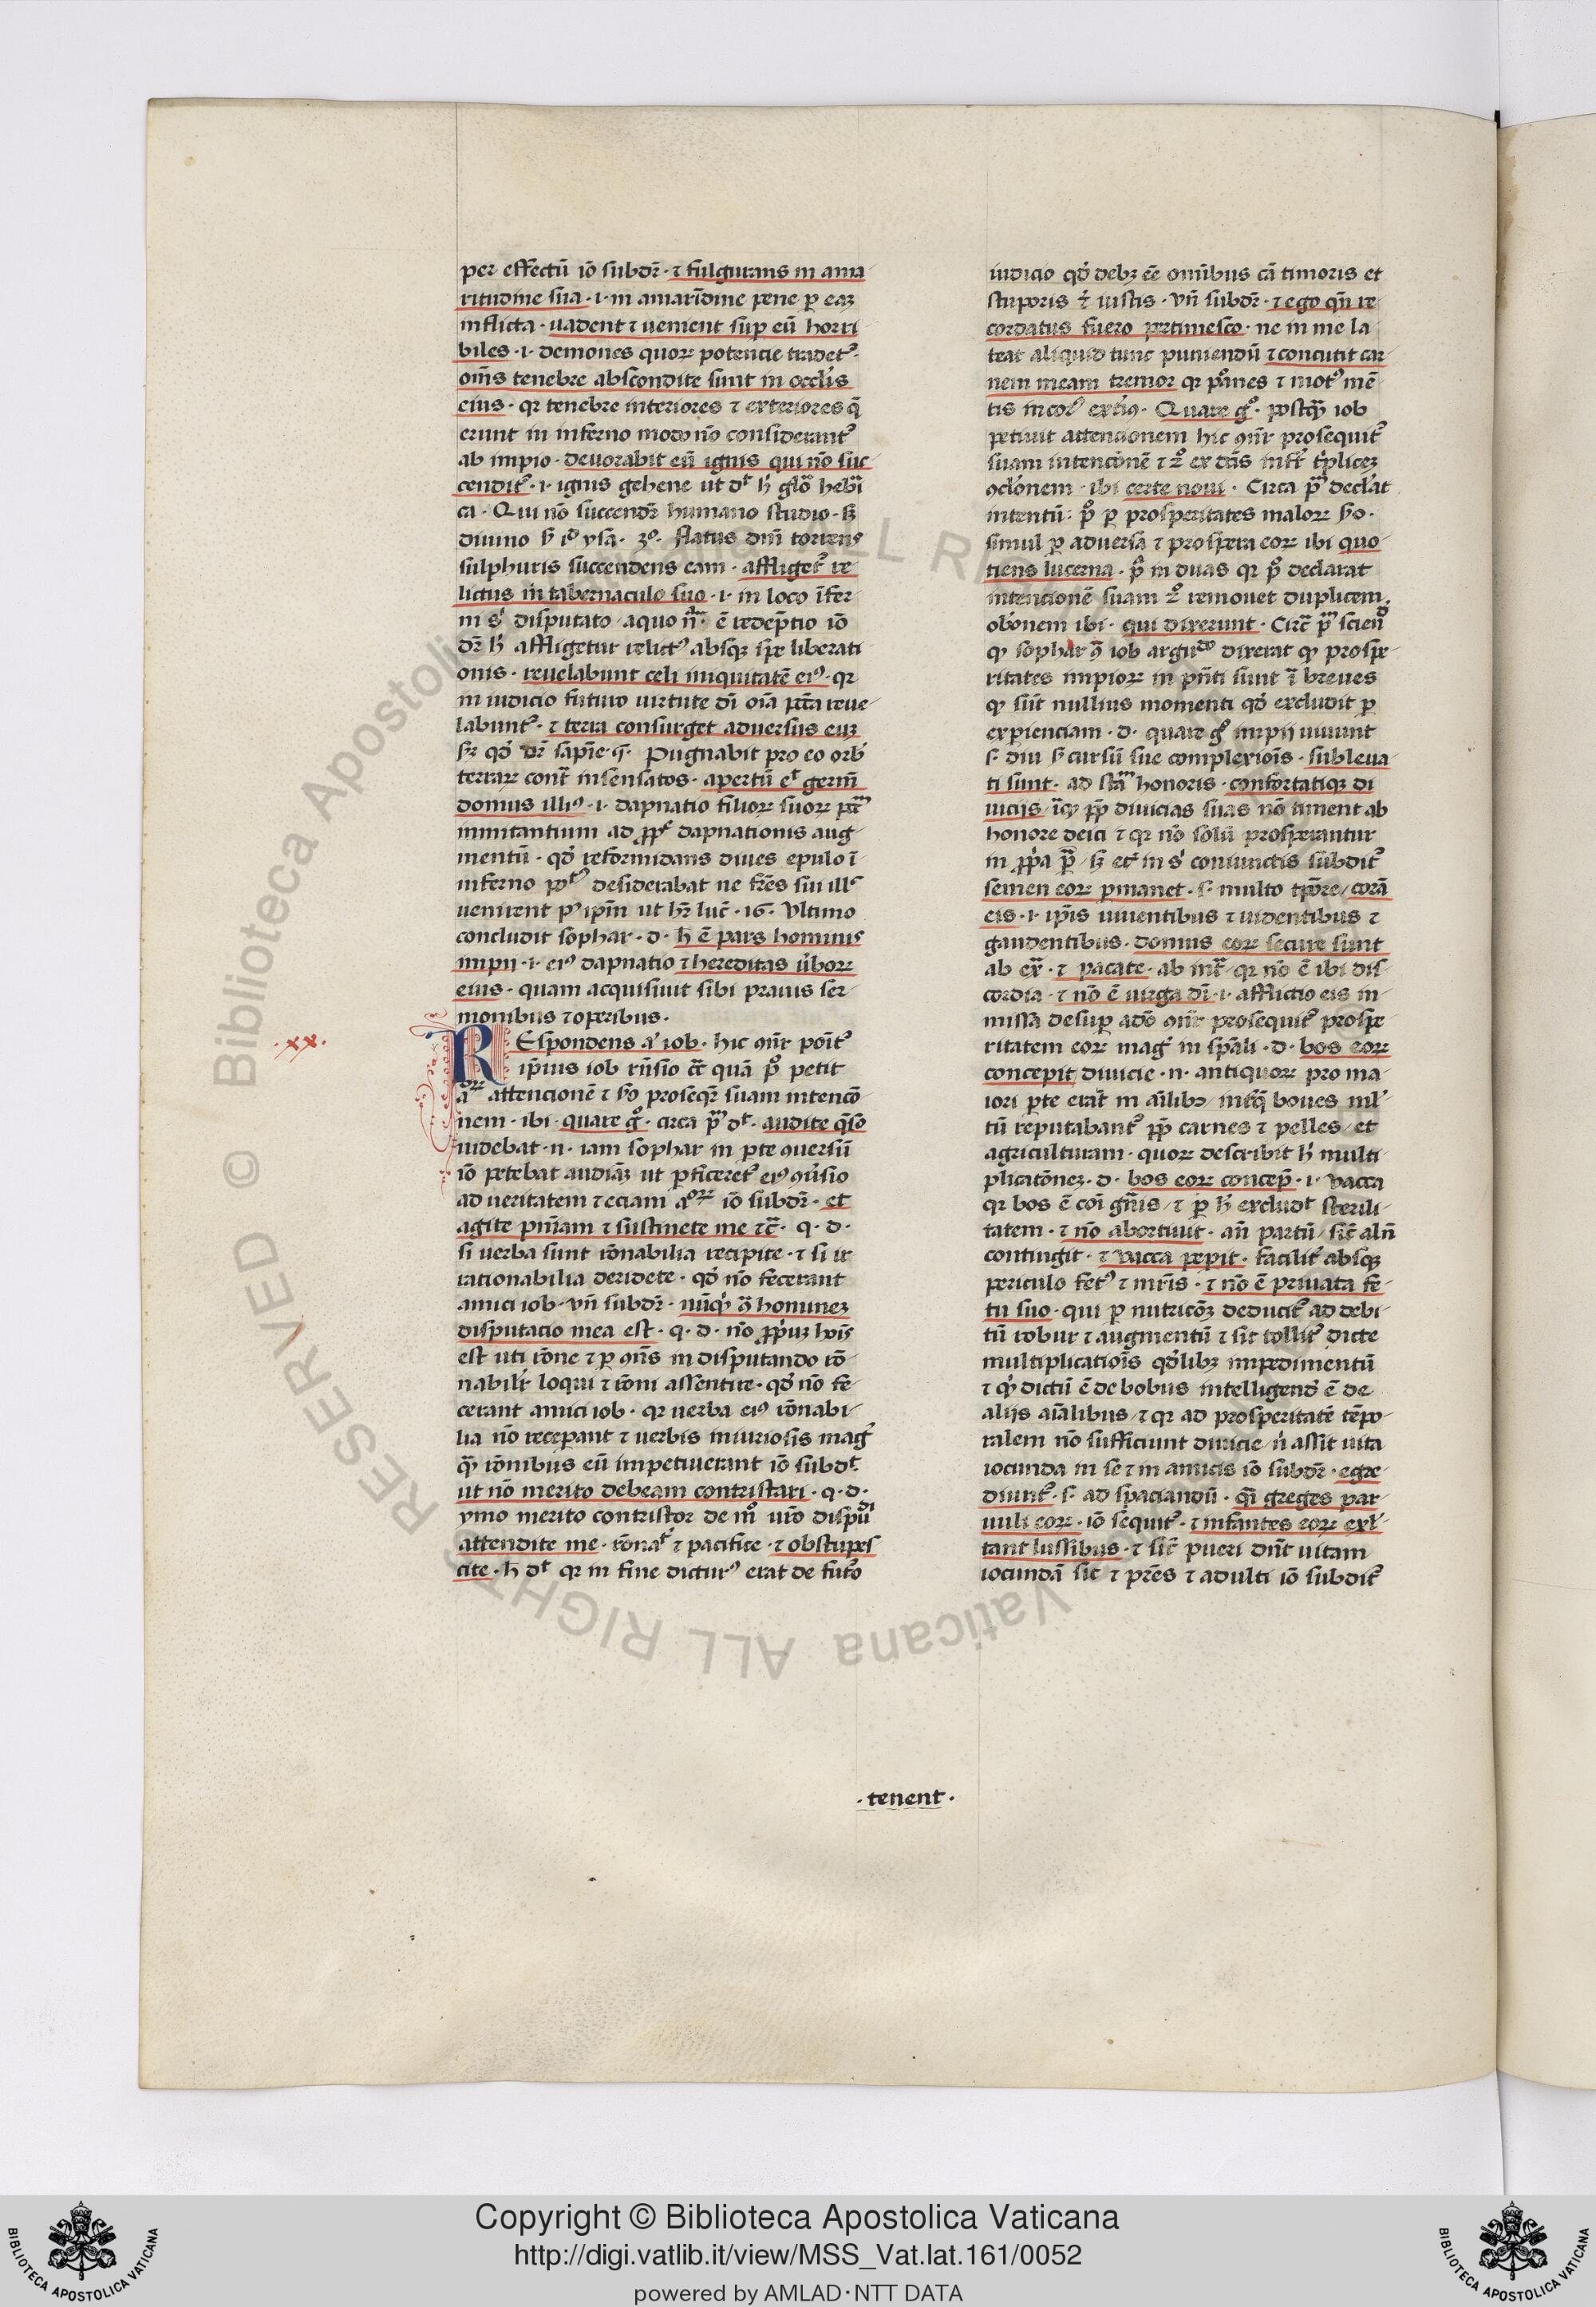 per effectū iō subdr̄ · ⁊ fulgurans in ama
ritudine sua · i · in amaritudine pene p eaȝ
inflicta · uadent ⁊ uenient sup eū horri
biles · i · demones quoꝝ potencie tradet᷑ ·
om̄s tenebre abscondite sunt in occl̓is
eius · qꝛ tenebre interiores ⁊ exteriores q̄
erunt in inferno modo nō considerant᷑
ab impio · deuorabit eū ignis qui nō suc
cendit᷑ · i · ignis gehene ut dt̄ h̓ glo᷑ hebi᷑
ca · Qui nō succendr̄ humano studio · sȝ
diuino
sulphuris succendens eam · affliget᷑ re
lictus in tabernaculo suo · i · in loco īfer
ni disputato a quo n̄ᵃ ē redēptio iō
dr̄ h̓ affligetur relictꝰ absqꝫ spe liberati
onis · reuelabunt celi iniquitatē eiꝰ · qꝛ
in iudicio futuro uirtute dī oīa pctā reue
labunt᷑ · ⁊ terra consurget aduersus euȝ
pugnabit pro eo orb̓
terraꝝ cont᷑ insensatos · apertū et germ̄
domus illiꝰ · i · dapnatio filioꝝ suoꝝ
imitantium ad dapnationis aug
mentū · qd̓ reformidans diues epulo ī
inferno desiderabat ne fr̄es sui illꝰ
uenirent ut hr̄ luc̄ · 16 · Vltimo
concludit sophar · d · h̓ ē pars hominis
impii · i · eiꝰ dapnatio ⁊ hereditas ūboꝝ
eius · quam acquisiuit sibi prauis ser
monibus ⁊ operibus ·
· xx ·
REspondens a᷑ iob · hic ꝯn̄r poīt᷑
ip̄ius iob rn̄sio c̄c̄ quā p̊ petit
attencionē ⁊ sō proseqr̄ suam intencō
nem · ibi · quare g̊ · circa pᵐ dt̄ · audite q̄so
uidebat · n · iam sophar in pte ꝯuersū
iō petebat ut pficeret᷑ eiꝰ ꝯūsio
ad ueritatem ⁊ eciam iō subdr̄ · et
agite pn̄iam ⁊ sustinete me ⁊c̄ · q · d ·
si uerba sunt rōnabilia recipite · ⁊ si ir
rationabilia deridete · qd̓ nō fecerant
amici iob · vn̄ subdr̄ · nūqd̓ ꝯ̄ hominez
disputacio mea est · q · d · nō p̄p̓uȝ hoīs
est uti rōne ⁊ p ꝯn̄s in disputando rō
nabilit᷑ loqui ⁊ rōni assentire · qd̓ nō fe
cerant amici iob · qꝛ uerba eiꝰ rōnabi
lia nō recepant ⁊ uerbis iniuriosis mag᷑
qᵐ rōnibus eū impetiuerant iō subdt̄
ut nō merito debeam contristari · q · d ·
ymo merito contristor de mō uro̅ dispu̅di
attendite me · rōnat᷑ ⁊ pacifice · ⁊ obstupes
cite · h̓ dt̄ qꝛ in fine dicturꝰ erat de futo᷑
iudicio qd̓ debȝ eē om̄ibus cā timoris et
stuporis iustis · vn̄ subdr̄ · ⁊ ego qn̄ re
cordatus fuero ptimesco · ne in me la
teat aliquid tunc puniendū ⁊ concutit car
nem meam tremor qꝛ ⁊ motꝰ mē
tis Quare g̊ · postqᵐ iob
petiuit attencionem hic ꝯn̄r prosequit᷑
suam intencōnē ⁊ 2° ex dc̄is inft᷑ t᷑plicez
ꝯclōnem · ibi certe noui · Circa pᵐ declāt
intentū · p̊ p prosperitates maloꝝ sō ·
simul p aduersa ⁊ prospera eoꝝ ibi quo
tiens lucerna · p̄ in duas qꝛ p̊ declarat
intencionē suam 2° remouet duplicem
ob̓onem ibi · qui dixerunt · Circ̄ pᵐ sciend̓
ꝙ sophar ꝯ̄ iob arguēdo dixerat ꝙ prospe
ritates impioꝝ in pn̄ti sunt ī breues
ꝙ sūt nullius momenti qd̓ excludit p
expienciam · d · quare g̊ impij uiuunt
s · diu sᵈ cursū sue complexiōis · subleua
ti sunt · ad stᵃtū honoris · confortatiqꝫ di
uicijs · p̄p̄ diuicias suas nō timent ab
honore deici ⁊ qꝛ nō solū prosperantur
in p̄p̓a sȝ et᷑ in coniunctis subdit᷑
semen eoꝝ pmanet · s · multo tpōre / corā
eis · i · ip̄is uiuentibus ⁊ uidentibus ⁊
gaudentibus · domus eoꝝ secure sunt
ab exᵃ · ⁊ pacate · ab int̄ᵃ qꝛ nō ē ibi dis
cordia · ⁊ nō ē uirga dī · i · afflictio eis in
missa desup adeo ꝯn̄r prosequit᷑ prospe
ritatem eoꝝ mag᷑ in sp̄ali · d · bos eoꝝ
concepit diuicie · n · antiquoꝝ pro ma
iori pte erāt in aīlibꝫ int᷑ q̄ boues ml᷑
tū reputabant᷑ p̄p̄ carnes ⁊ pelles / et
agriculturam · quoꝝ describit h̓ multi
plicatōnez · d · bos eoꝝ concep̄ · i · vacca
qꝛ bos ē coī gn̄is / ⁊ p h̓ excludt̄ sterili
tatem · ⁊ nō abortiuit · an̄ partū / sic̄ aln̄
contingit · ⁊ vacca pepit · facilit᷑ absqꝫ
periculo fetꝰ ⁊ mr̄is · ⁊ nō ē priuata fe
tu suo · qui p nutricōȝ deducit᷑ ad debi
tū robur ⁊ augmentū ⁊ sic tollit᷑ dicte
multiplicatiōis qd̓libȝ impedimentū
⁊ qd̓ dictū ē de bobus intelligend̓ ē de
alijs aīalibus / ⁊ qꝛ ad prosperitatē tēpo
ralem nō sufficiunt diuicie / n̓ assit uita
iocunda in se ⁊ in amicis iō subdr̄ · egre
diunt᷑ · s · ad spaciandū · q̄i greges par
uuli eoꝝ · iō seq̄uit᷑ · ⁊ infantes eoꝝ exl᷑
tant lussibus · ⁊ sic̄ pueri dn̄t uitam
iocundā sic ⁊ pr̄es ⁊ adulti iō subdit᷑
· tenent ·
Copyright © Biblioteca Apostolica Vaticana
http://digi.vatlib.it/view/MSS_Vat.lat.161/0052
powered by AMLAD·NTT DATA